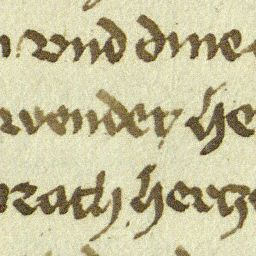 n vnd dine
wender he
rach hertze